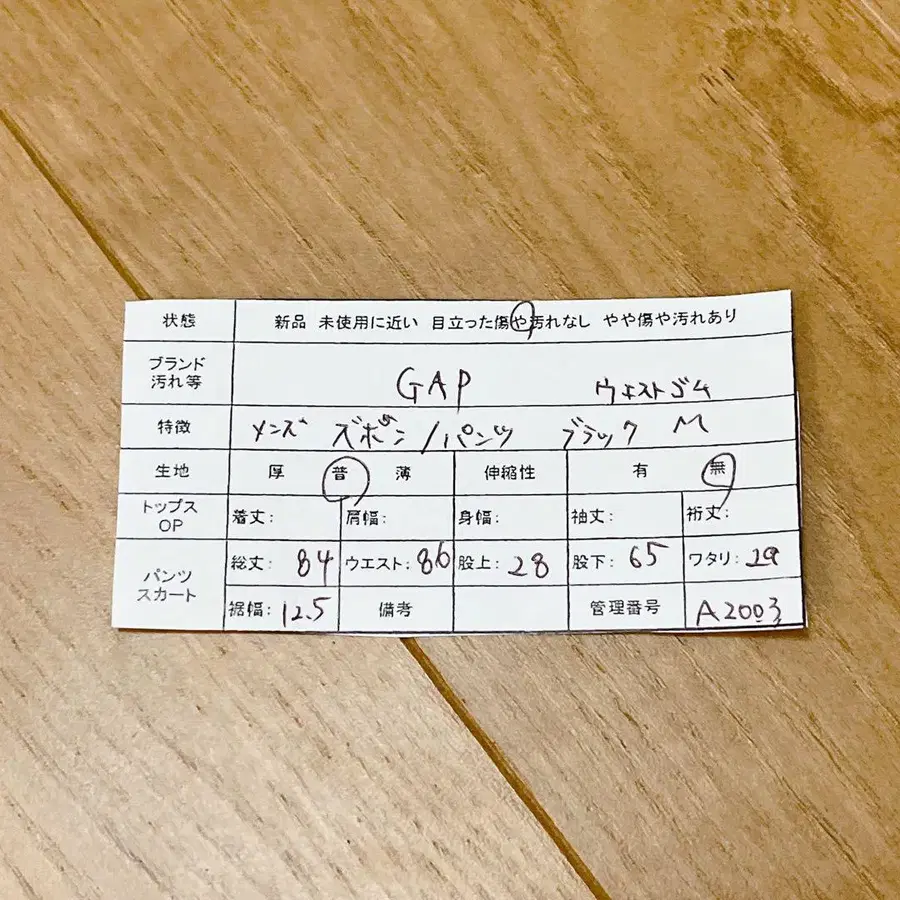 状態 新品 未使用に近い 目立った傷や汚れなし やや傷や汚れあり
ブランド 汚れ等 GAP ウエストゴム
特徴 メンズ ズボン/パンツ ブラック M
生地 厚 普 薄 伸縮性 有 無
トップス OP 着丈: 肩幅: 身幅: 袖丈: 裄丈:
パンツ スカート 総丈: 84 ウエスト: 86 股上: 28 股下: 65 ワタリ: 29
裾幅: 12.5 備考 管理番号 A2003